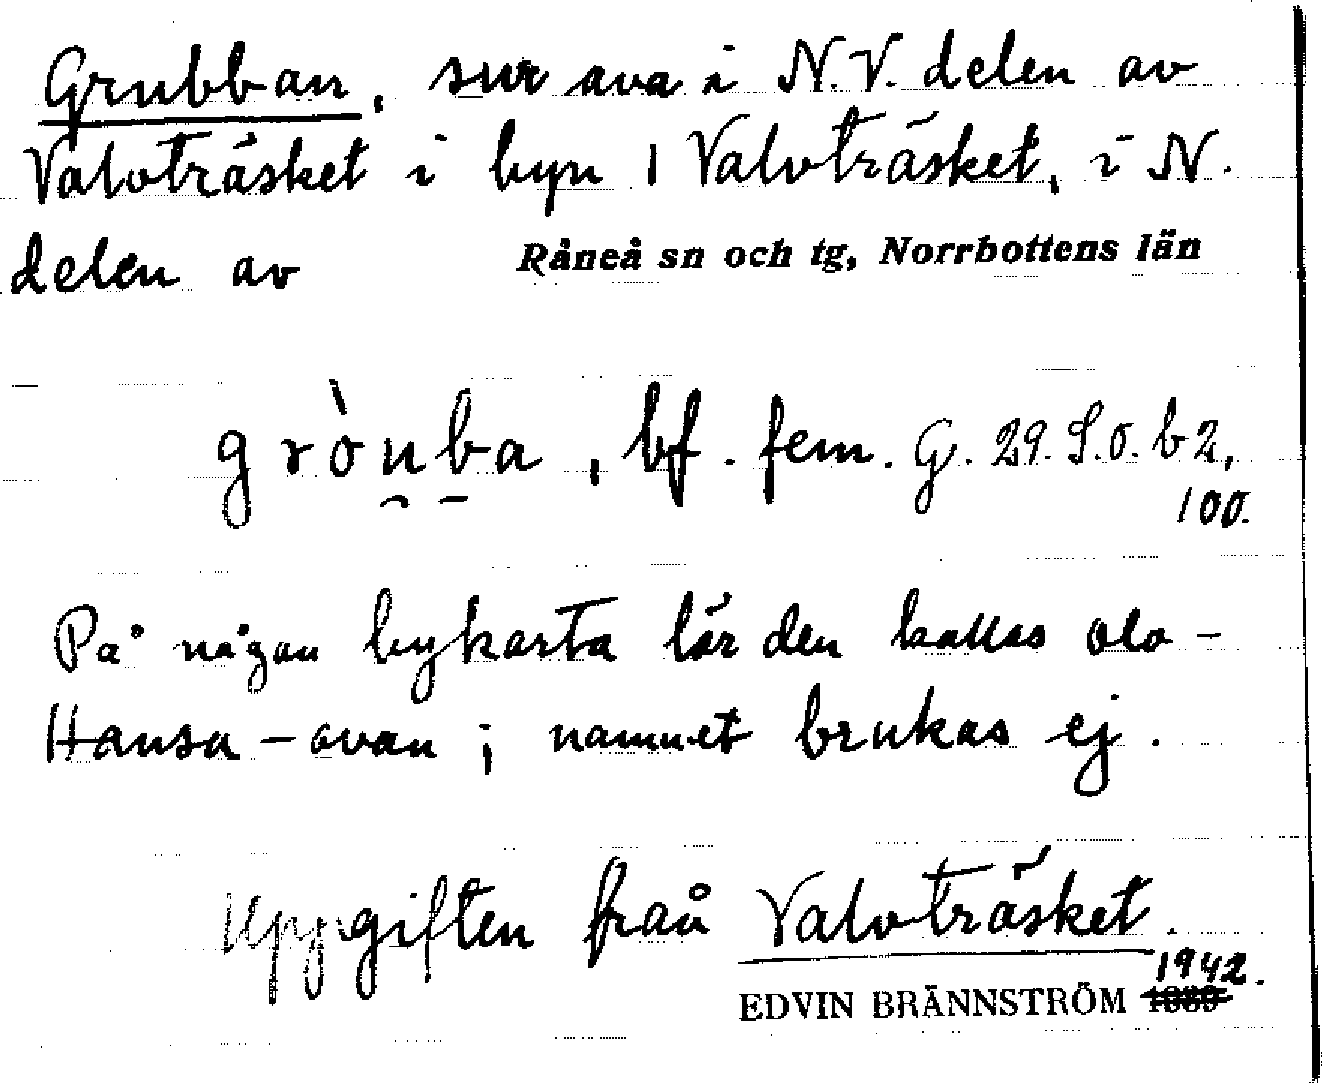 Grubban, sur ava i N.V. delen av
Valvträsket i byn 1 Valvträsket, i N.
delen av Råneå sn och tg, Norrbottens län
gròṵḇa, bf. fem. G. 29. S.O. b2,
100.
På någon bykarta lär den kallas Olo-
Hansa-avan; namnet brukas ej.
Uppgiften från Valvträsket.
1942.
EDVIN BRÄNNSTRÖM